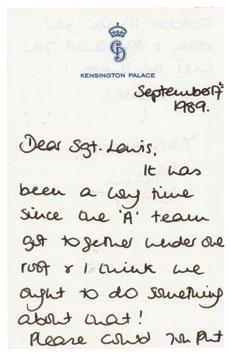 KENSINGTON PALACE
September
1989.
Dear Sgt. Lewis,
It was
been a long time
since the 'A' team
got together under one
roof & I think we
ought to do something
about that!
Please could you put